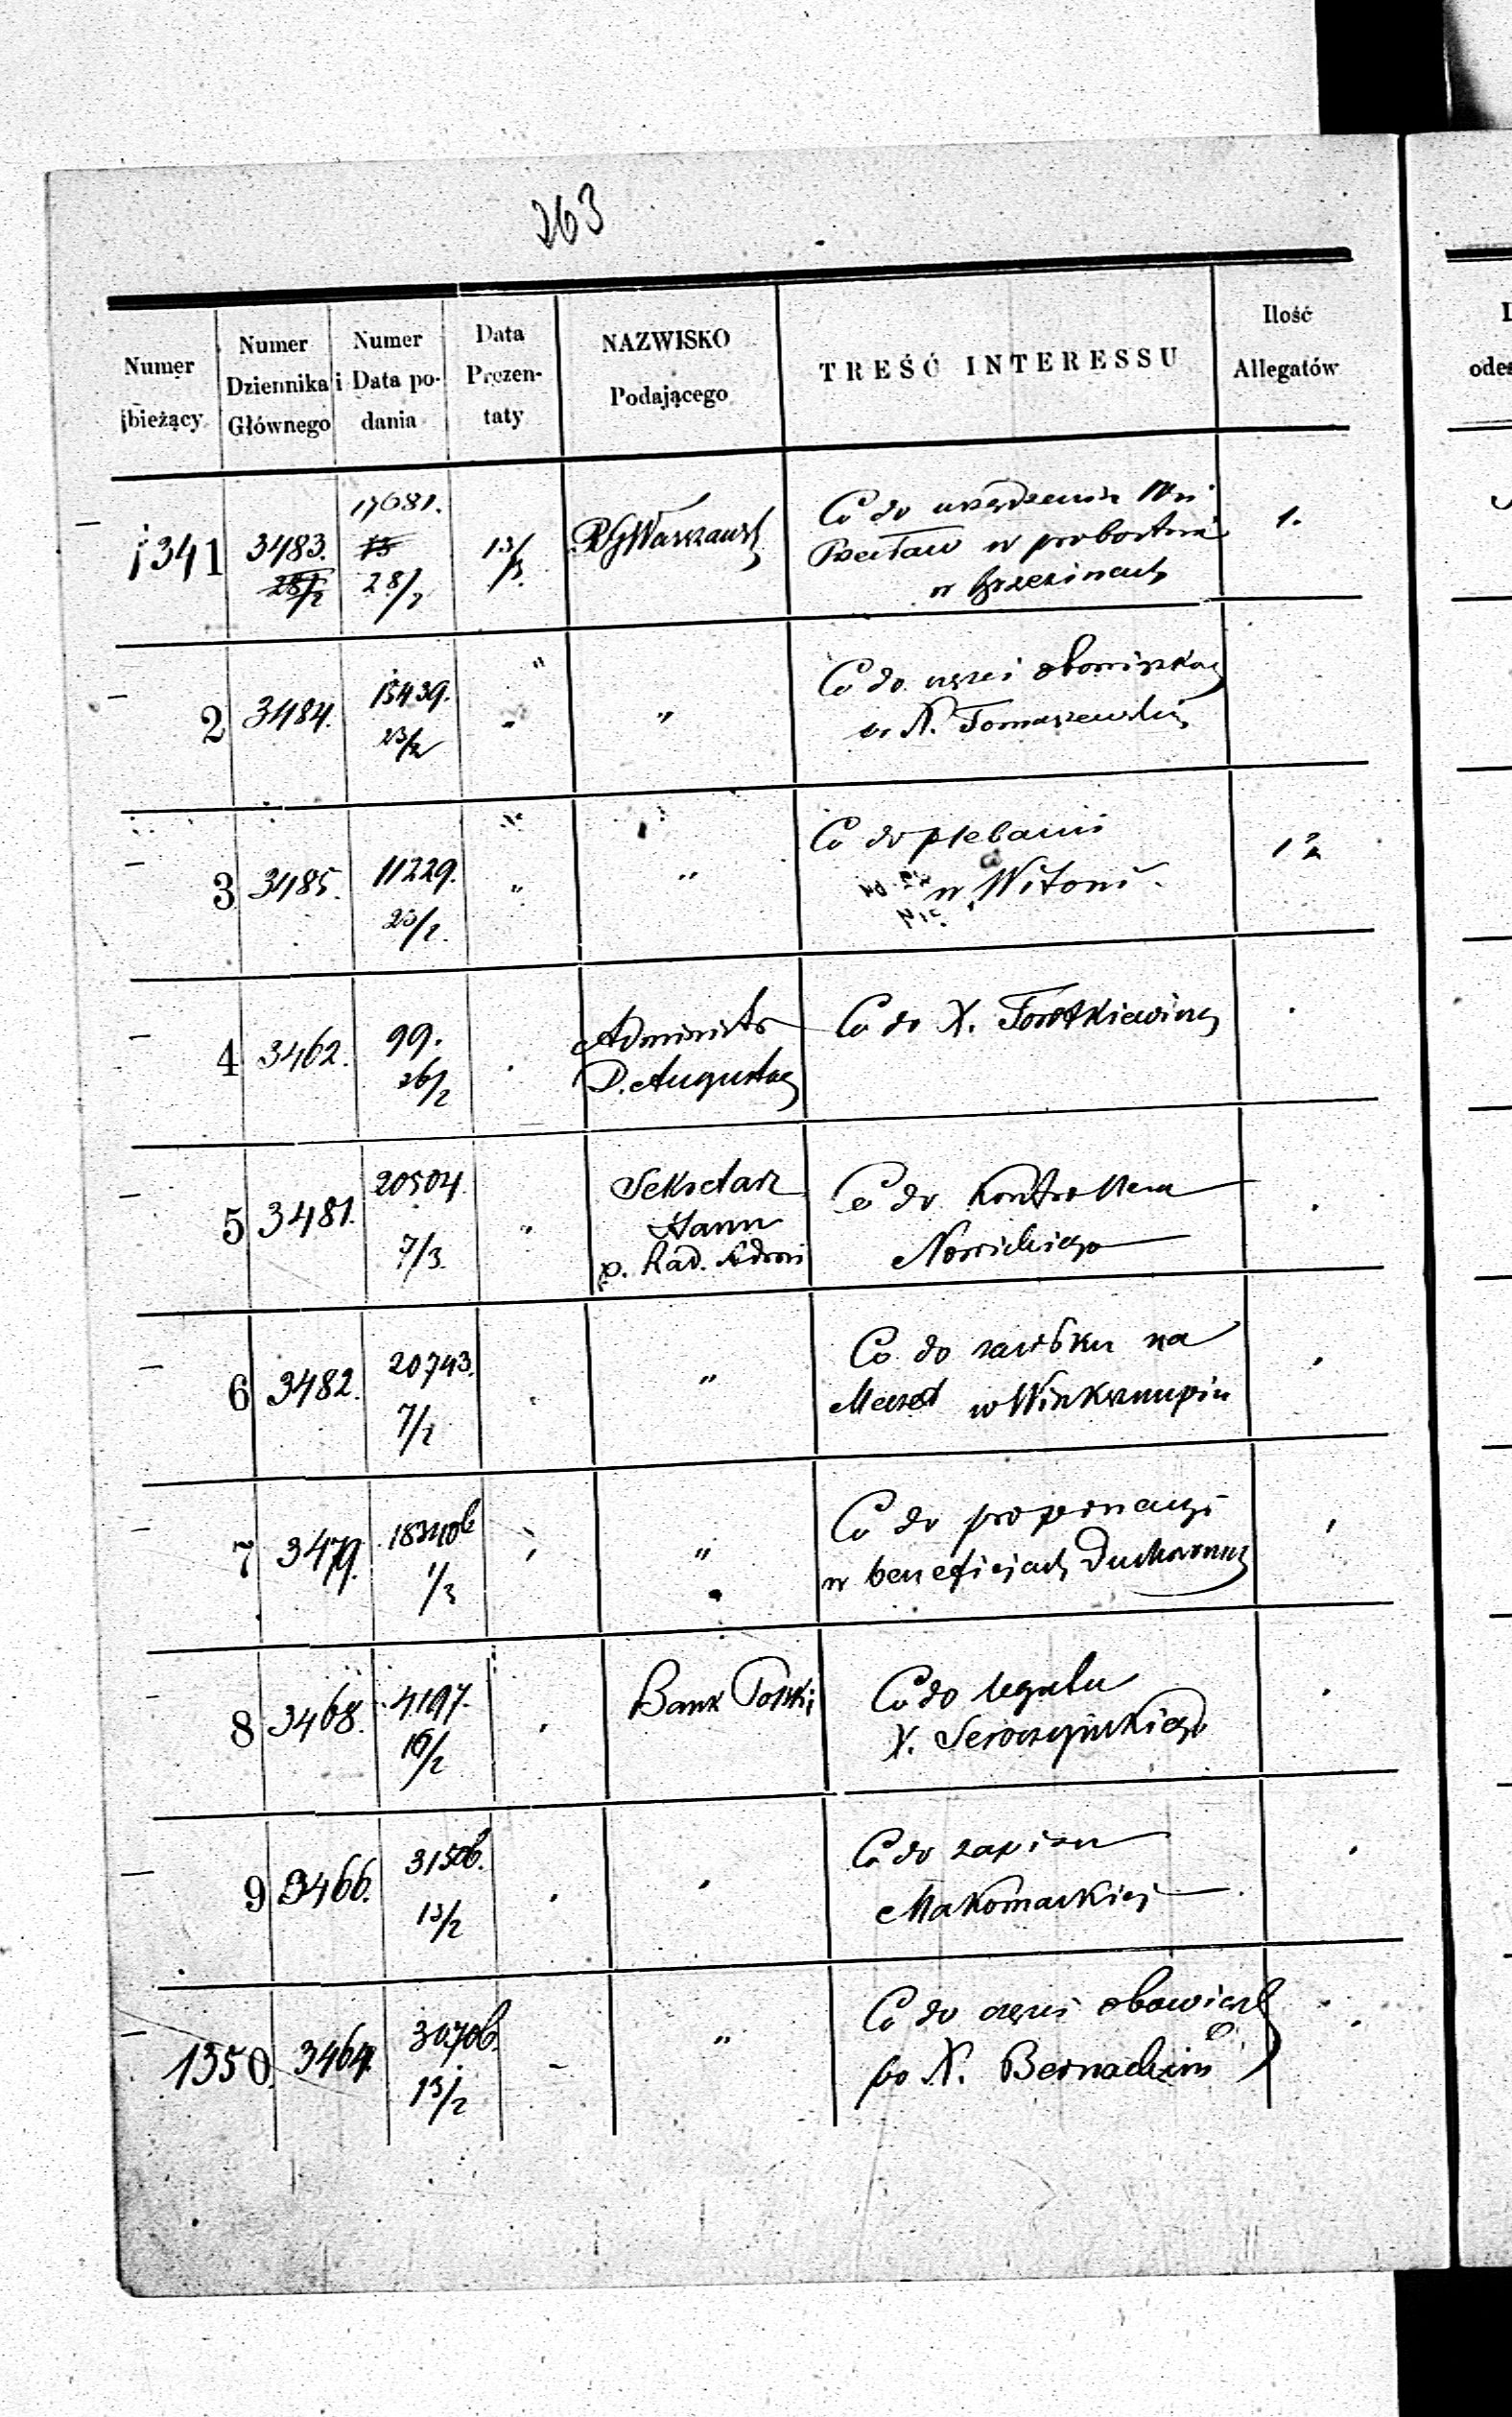 263
Numer bieżący
Numer Dziennika Głównego
Numer i Data podania
Data Prezentaty
NAZWISKO Podającego
TREŚĆ INTERESSU
Ilość Allegatów
1341 3483. 17681. 28/2 13/3 RGWarszaws Co do urządzenia Wsi
w probostwie
w Brzezinach 1.
2 3484. 15439. 23/2 " " Co do części obowiązków
X. Tomaszewskim
3 3485. 11229. 23/2. " " Co do plebanii
w Witoni. 1
4 3462. 99. 26/2 Administr
D. Augustow
Co do X.
5 3481. 20504. 7/3. " Sekretarz
Hann
p. Rad. Admi
Co do Kontrollera
Nowickiego
6 3482. 20743. 7/2 " Co do zarobku na
w
7 3479. 1/3 " Co do propinacyi
w beneficjach Duchownych
8 3468. 4197. 16/2 Bank Polski Co do legatu
X.
9 3466. 3150b. 13/2 Co do zapisu
Makomaskiej
1350. 3464. 3070b. 13/2 " Co do części obowiązk
po X. Bernackim